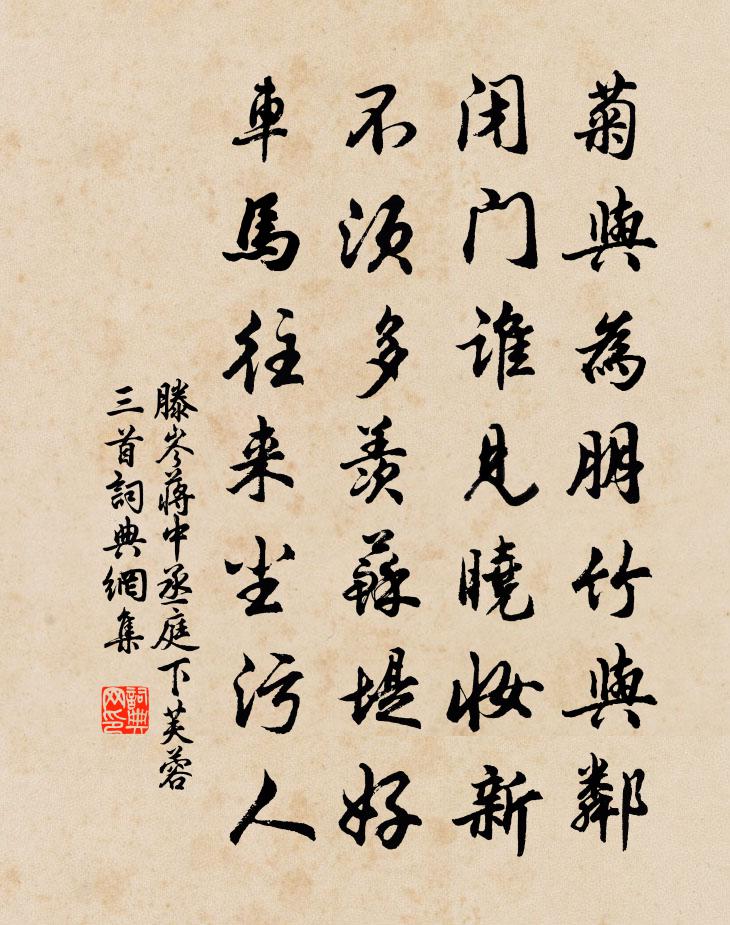 菊與為朋竹與鄰
閉門誰見曉妝新
不須多羨蘇堤好
車馬往来尘污人
滕岑蔣中丞庭下芙蓉
三首詞典網集
詞典
网印